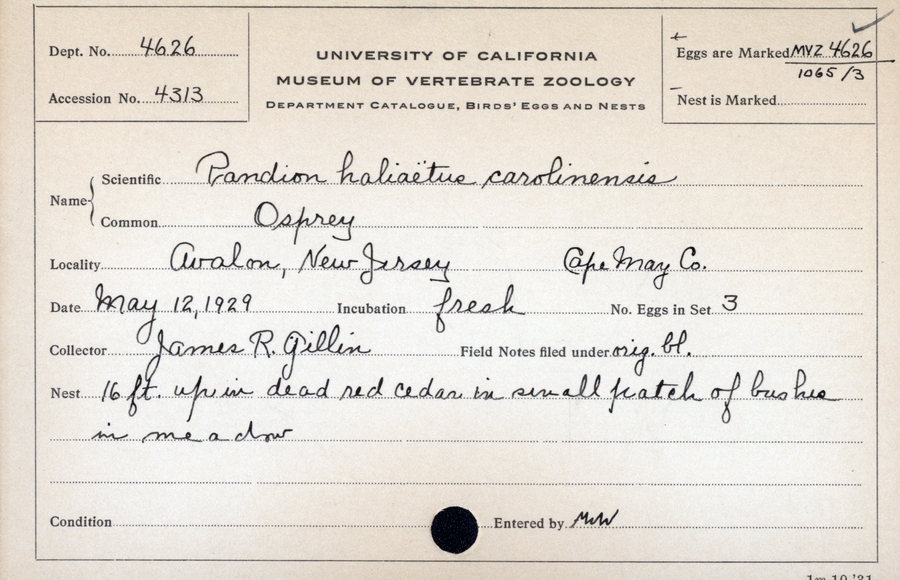 Dept. No. 4626
Accession No. 4313
UNIVERSITY OF CALIFORNIA
MUSEUM OF VERTEBRATE ZOOLOGY
DEPARTMENT CATALOGUE, BIRDS' EGGS AND NESTS
Eggs are Marked MVZ 4626
1065/3
Nest is Marked
Name
Scientific Pandion haliaëtus carolinensis
Common Osprey
Locality Avalon, New Jersey Cape May Co.
Date May 12, 1929 Incubation fresh No. Eggs in Set 3
Collector James R. Gillin Field Notes filed under orig. bl.
Nest 16 ft. up in dead red cedar in small patch of bushes
in meadow
Condition Entered by
1m 10 '31